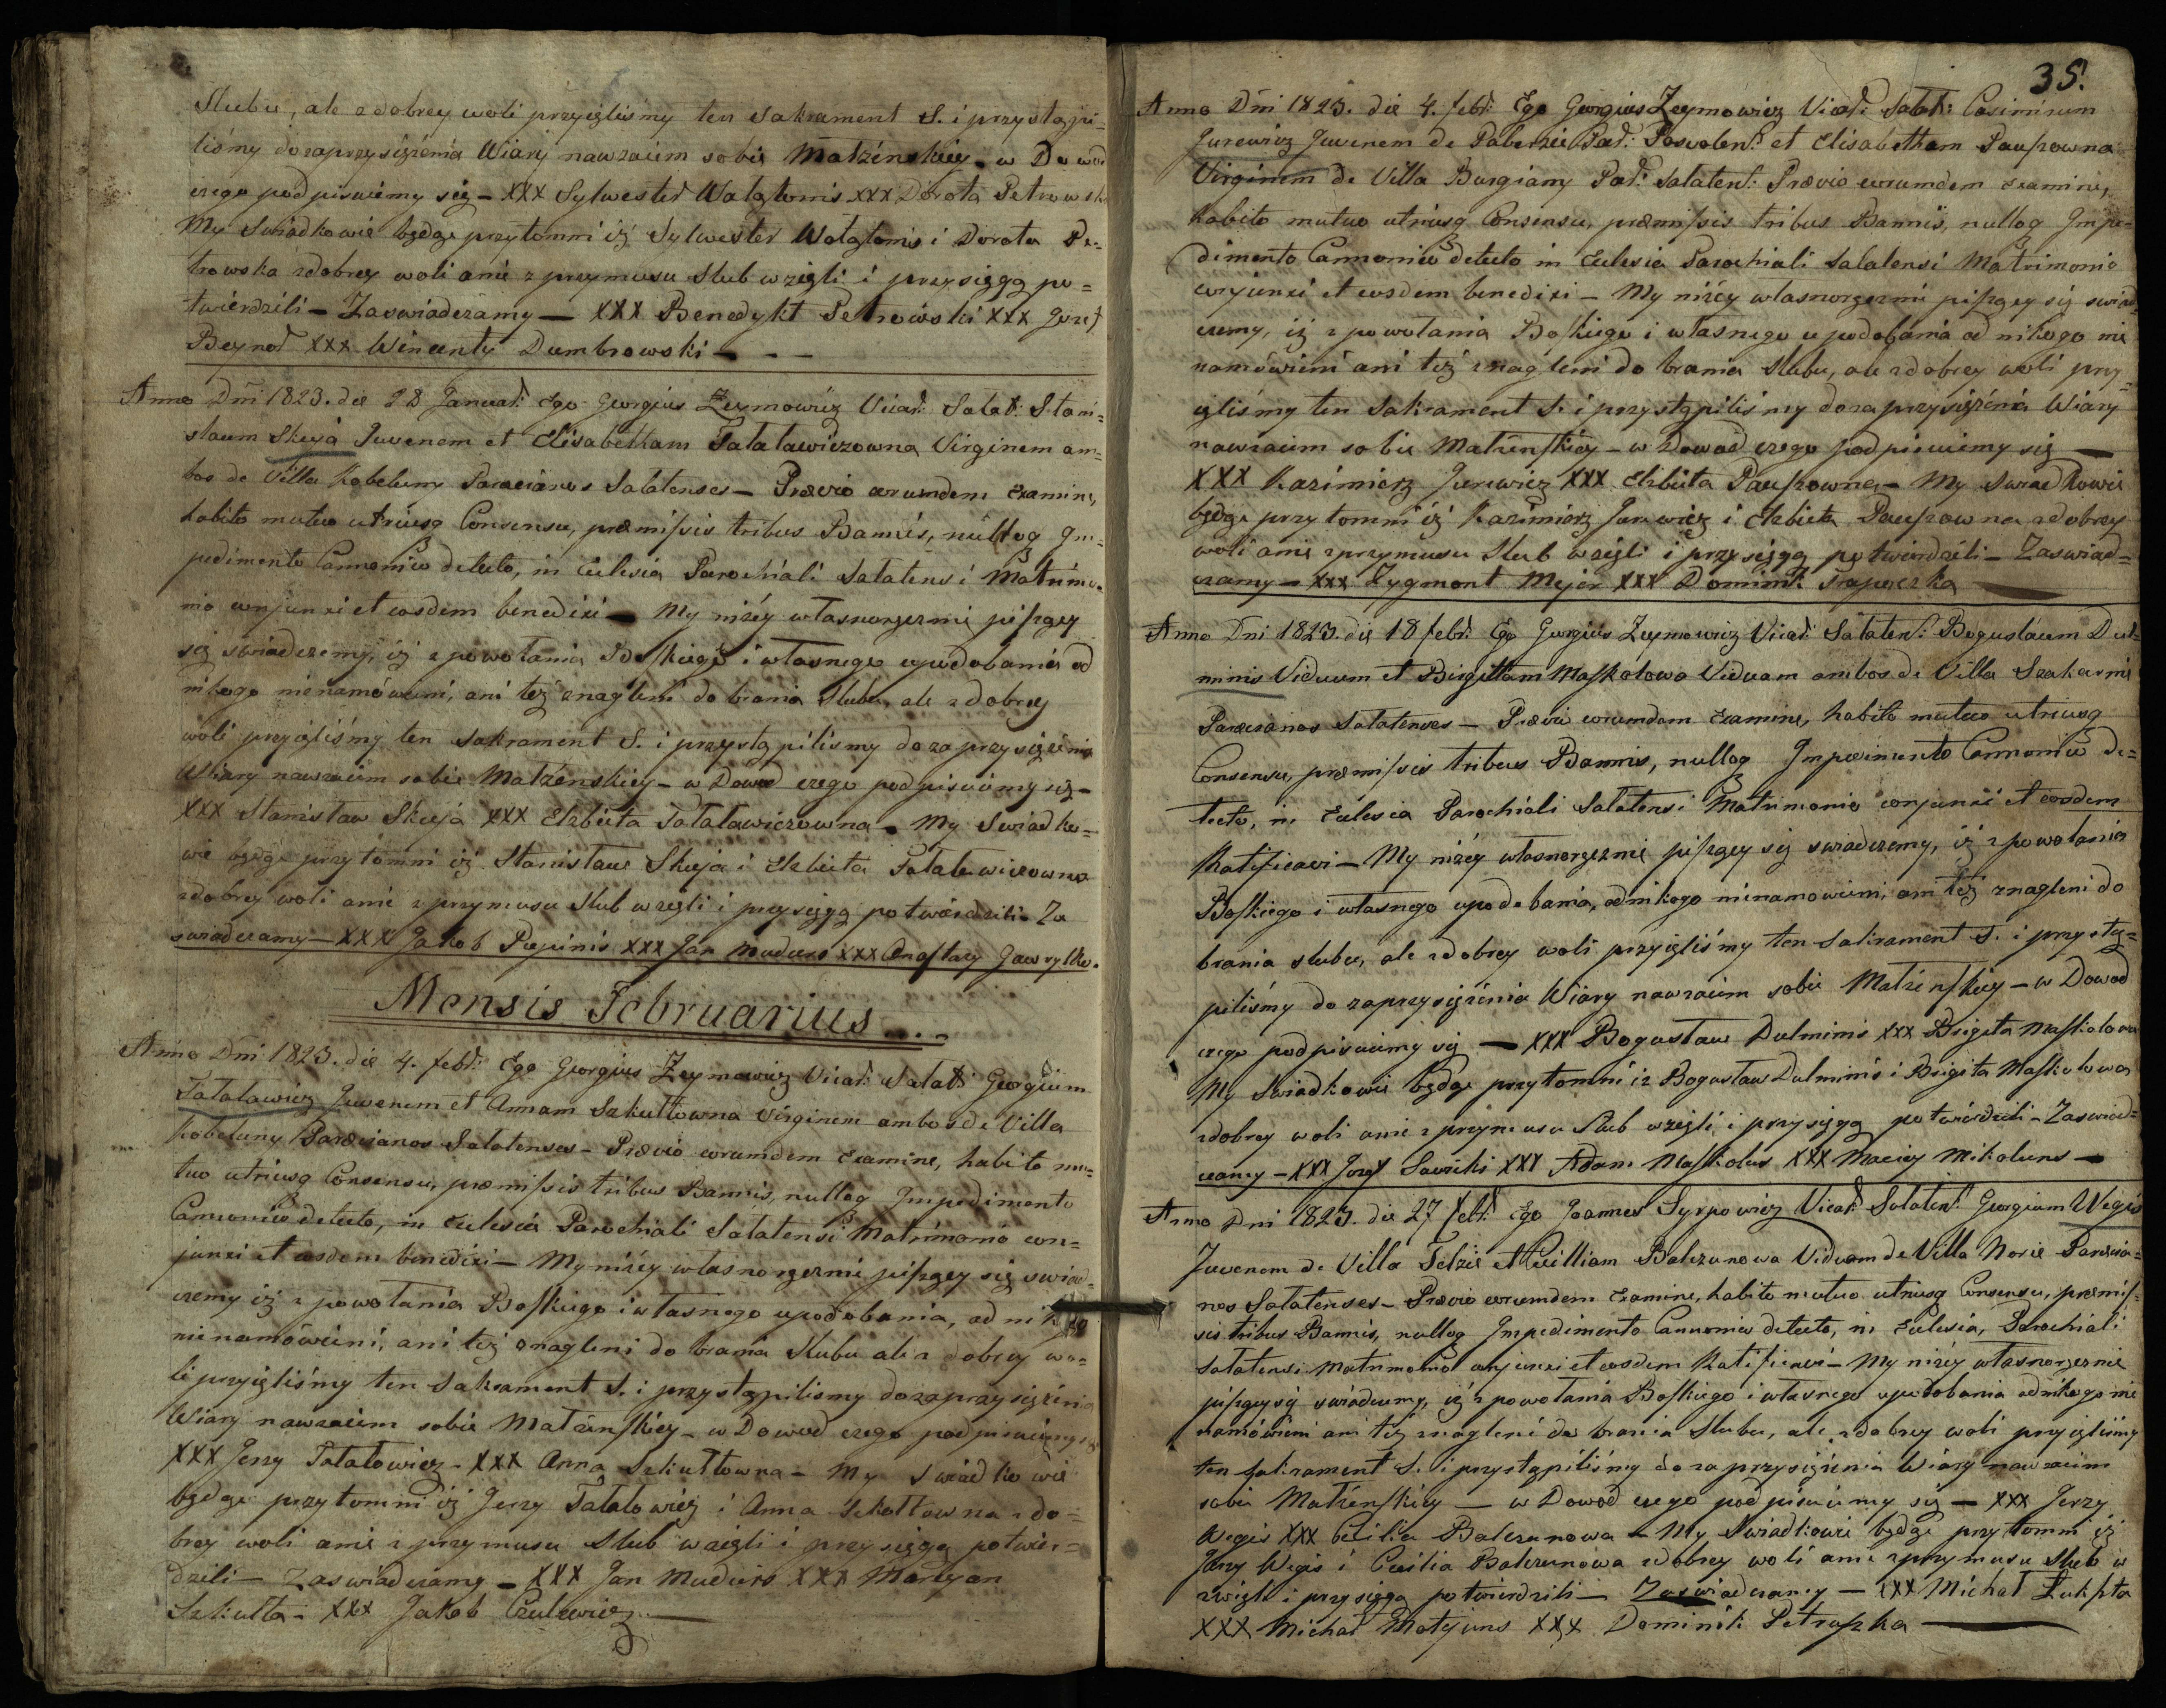 Slubu, ale z dobrey woli przyięliśmy ten Sakrament S. i przystąpi-
liśmy do zaprzysiężenia Wiary nawzaiem sobie Małżenskiey - w Dowod
czego podpisuiemy się - XXX Sylwester Wałątonis XXX Dorota Petrowska
My Swiadkowie będąc przytomni iż Sylwester Wałątonis i Dorota Pe=
trowska z dobrey woli a nie z przymusu Slub wzięli i przysięgą po=
twierdzili - Zaswiadczamy - XXX Benedykt Petrowski XXX Jozef
Beynar XXX Wincenty Dumbrowski - - -
Anno Dni 1823. die 28 Januar: Ego Georgius Zeymowicz Vicar: Salat: Stani=
slaum Skuja Juvenem et Elisabetham Tatalawiczowna Virginem am=
bos de Villa Kobeluny Paraecianos Salatenses - Praevio eorumdem Examine,
habito mutuo utriusq Consensu, praemissis tribus Bannis, nulloq Im=
pedimento Cannonico detecto, in Ecclesia Parochiali Salatensi Matrimo=
nio conjunxi et eosdem benedixi - My niżey własnoręcznie piszący
się swiadczemy, iż z powołania Boskiego i własnego upodobania od
nikogo nienamówieni, ani też znagleni do brania Slubu, ale z dobrey
woli przyięliśmy ten Sakrament S. i przystąpilismy do zaprzysiężenia
Wiary nawzaiem sobie Małżenskiey - w Dowod czego podpisuiemy się -
XXX Stanisław Skuja XXX Elzbieta Tatalawiczowna - My Swiadko=
wie będąc przytomni iż Stanisław Skuja i Elzbieta Tatalawiczowna
z dobrey woli a nie z przymusu Slub wzięli i przysięgą potwierdzili - Za
swiadczamy - XXX Jakob Pupinis XXX Jan Muduro XXX Anastazy Gawryłko.
Mensis Februarius - - -
Anno Dni 1823. die 4. febr: Ego Georgius Zeymowicz Vicar: Salat: Georgium
Tatalawicz Juvenem et Annam Szkultowna Virginem ambos de Villa
Kobeluny Paraecianos Salatenses - Praevio eorumdem Examine, habito mu=
tuo utriusq Consensu, praemissis tribus Bannis, nulloq Impedimento
Cannonico detecto, in Ecclesia Parochiali Salatensi Matrimonio con=
junxi et eosdem benedixi - My niżey własnoręcznie piszący się swiad=
czemy iż z powołania Boskiego i własnego upodobania, od nikogo
nienamówieni, ani też znagleni do brania Slubu ale z dobrey wo=
li przyięliśmy ten Sakrament S. i przystąpilismy do zaprzysiężenia
Wiary nawzaiem sobie Małżenskiey - w Dowod czego podpisuiemy się
XXX Jerzy Tatalowicz - XXX Anna Szkultowna - My Swiadkowie
będąc przytomni iż Jerzy Tatalowicz i Anna Szkoltowna z do=
brey woli a nie z przymusu Slub wzięli i przysięgą potwier=
dzili - Zaswiadczamy - XXX Jan Muduro XXX Martyan
Szkulta - XXX Jakob Czulewicz
35.
Anno Dni 1823. die 4. febr: Ego Georgius Zeymowicz Vicar: Salat: Casimirum
Jurewicz Juvenem de Paberzie Par: Poswolens: et Elisabetham Pauszowna
Virginem de Villa Burgiany Par: Salatens: Praevio eorumdem examine,
habito mutuo utriusq Consensu, praemissis tribus Bannis, nulloq Impe=
dimento Cannonico detecto in Ecclesia Parochiali Salatensi Matrimonio
conjunxi et eosdem benedixi - My niżey własnoręcznie piszący się swiad=
czemy, iż z powołania Boskiego i własnego upodobania od nikogo nie
namówieni ani też znagleni do brania Slubu, ale z dobrey woli przy=
ięliśmy ten Sakrament S. i przystąpiliśmy do zaprzysiężenia Wiary
nawzaiem sobie Małżenskiey - w Dowod czego podpisuiemy się -
XXX Kazimierz Jurewicz XXX Elzbieta Pauszowna - My Swiadkowie
będąc przytomni iż Kazimierz Jurewicz i Elzbieta Pauszowna z dobrey
woli a nie z przymusu Slub wzięli i przysięgą potwierdzili - Zaswiad=
czamy - XXX Zygmont Mejer XXX Dominik
Anno Dni 1823. die 18 febr: Ego Georgius Zeymowicz Vicar: Salatens: Boguslaum Dul=
minis Viduum et Birgittam Maskolowa Viduam ambos de Villa Szakarnie
Paraecianos Salatenses - Praevio eorumdem Examine, habito mutuo utriusq
Consensu, praemissis tribus Bannis, nulloq Impedimento Cannonico de=
tecto, in Ecclesia Parochiali Salatensi Matrimonio conjunxi et eosdem
Ratificavi - My niżey własnoręcznie piszący się swiadczemy, iż z powołania
Boskiego i własnego upodobania, od nikogo nienamowieni, ani też znagleni do
brania slubu, ale z dobrey woli przyięliśmy ten Sakrament S. i przystą=
piliśmy do zaprzysiężenia Wiary nawzaiem sobie Małżenskiey - w Dowod
czego podpisuiemy się - XXX Bogusław Dulminis XXX Brigita Maskolowa
My Swiadkowie będąc przytomni iż Bogusław Dulminis i Brigita Maskolowa
z dobrey woli a nie z przymusu Slub wzięli i przysięgą potwierdzili - Zaswiad=
czamy - XXX Jozef Sawicki XXX Adam Maskolus XXX Maciey Mikoluns -
Anno Dni 1823. die 27 febr: Ego Joannes Syrpowicz Vicar: Salatens: Georgium Wegis
Juvenem de Villa Telzie et Cecilliam Balczunowa Viduam de Villa Norie Paraecia=
nos Salatenses - Praevio eorumdem Examine, habito mutuo utriusq Consensu, praemis=
sis tribus Bannis, nulloq Impedimento Cannonico detecto, in Ecclesia, Parochiali
Salatensi Matrimonio conjunxi et eosdem Ratificavi - My niżey własnoręcznie
piszący się swiadczemy, iż z powołania Boskiego i własnego upodobania od nikogo nie
namówieni ani też znagleni do brania Slubu, ale z dobrey woli przyięliśmy
ten Sakrament S. i przystąpiliśmy do zaprzysiężenia Wiary nawzaiem
sobie Małżenskiey - w Dowod czego podpisuiemy się - XXX Jerzy
Wegis XXX Cecilia Balczunowa - My Swiadkowie będąc przytomni iż
Jerzy Wegis i Cecilia Balczunowa z dobrey woli a nie z przymusu Slub w
zwięli i przysięgą potwierdzili - Zaswiadczamy - XXX Michał Łukszta
XXX Michał Matyjuns XXX Dominik Petraszka